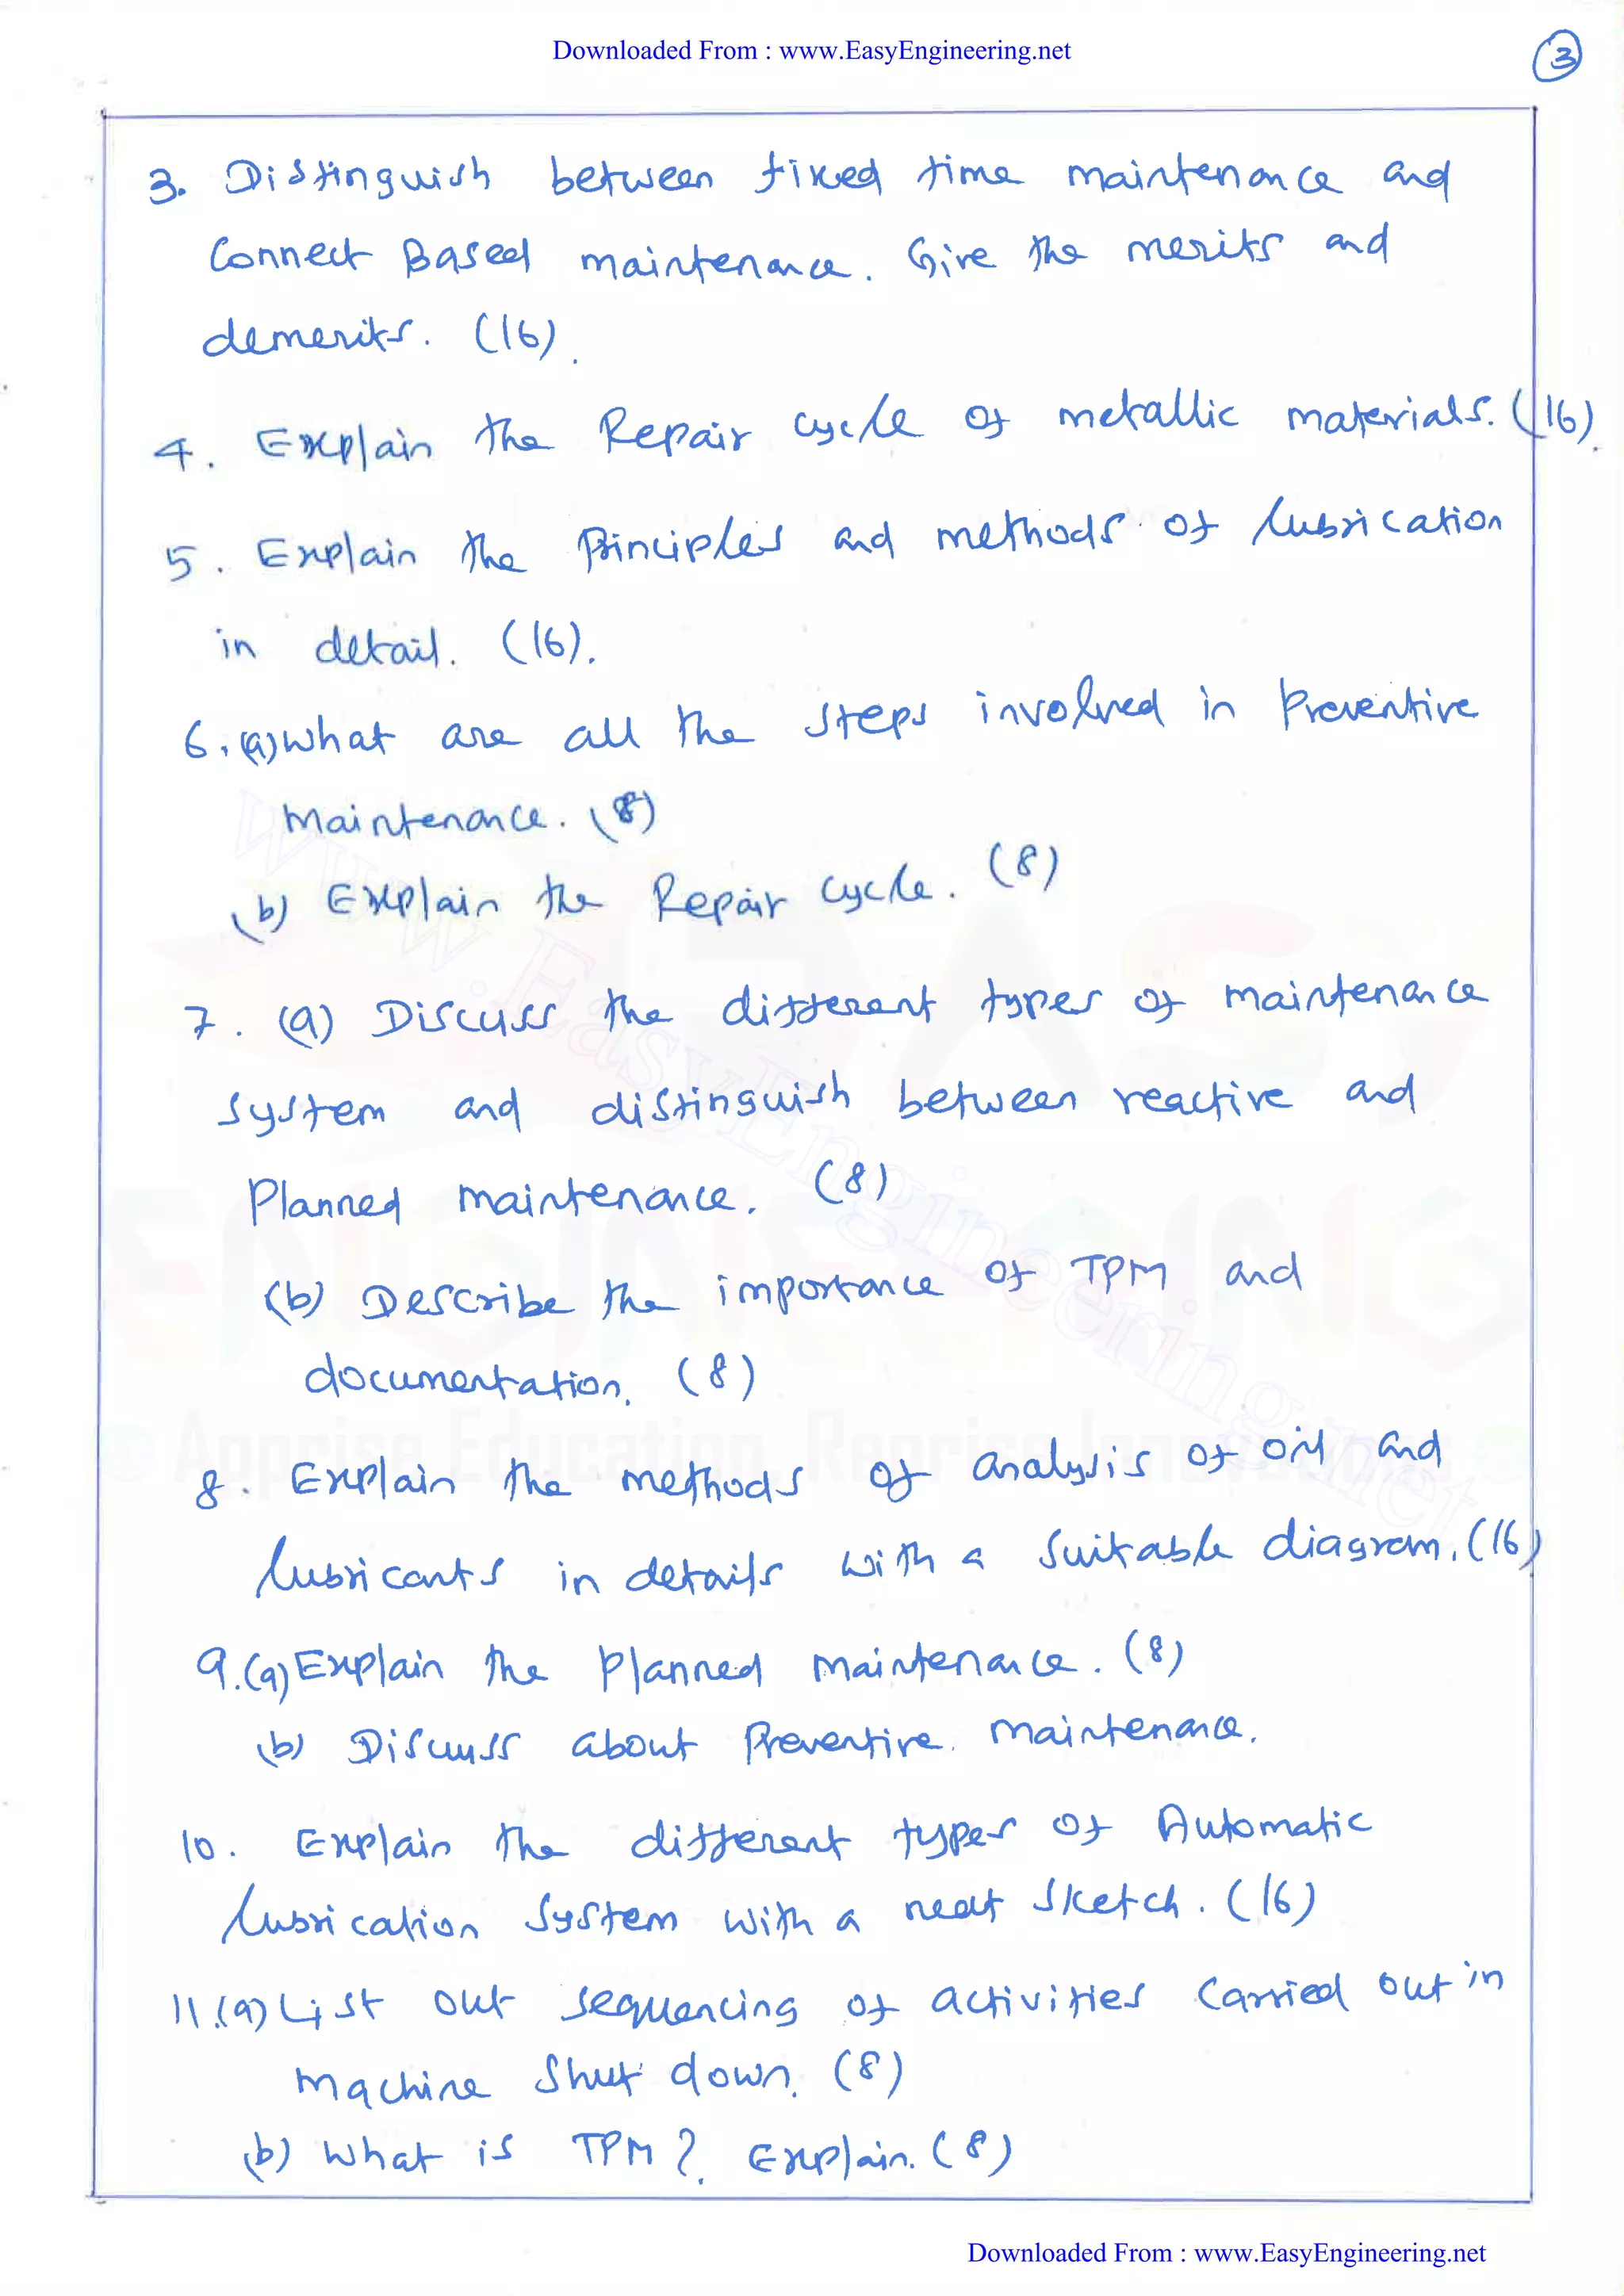 Downloaded From : www.EasyEngineering.net
3
3. Distinguish between fixed time maintenance and
Connect Based maintenance. Give the merits and
demerits. (16).
4. Explain the Repair cycle of metallic materials. (16).
5. Explain the Principles and methods of lubrication
in detail. (16).
6. (a) What are all the steps involved in Preventive
Maintenance. (8)
(b) Explain the Repair cycle. (8)
7. (a) Discuss the different types of maintenance
system and distinguish between reactive and
Planned maintenance. (8)
(b) Describe the importance of TPM and
documentation. (8)
8. Explain the methods of analysis of oil and
lubricants in details with a suitable diagram. (16)
9. (a) Explain the Planned maintenance. (8)
(b) Discuss about Preventive maintenance.
10. Explain the different types of Automatic
lubrication system with a neat sketch. (16)
11. (a) List out sequencing of activities carried out in
machine shut down. (8)
(b) What is TPM? Explain. (8)
www.EasyEngineering.net
EASY
ENGINEERING
Downloaded From : www.EasyEngineering.net